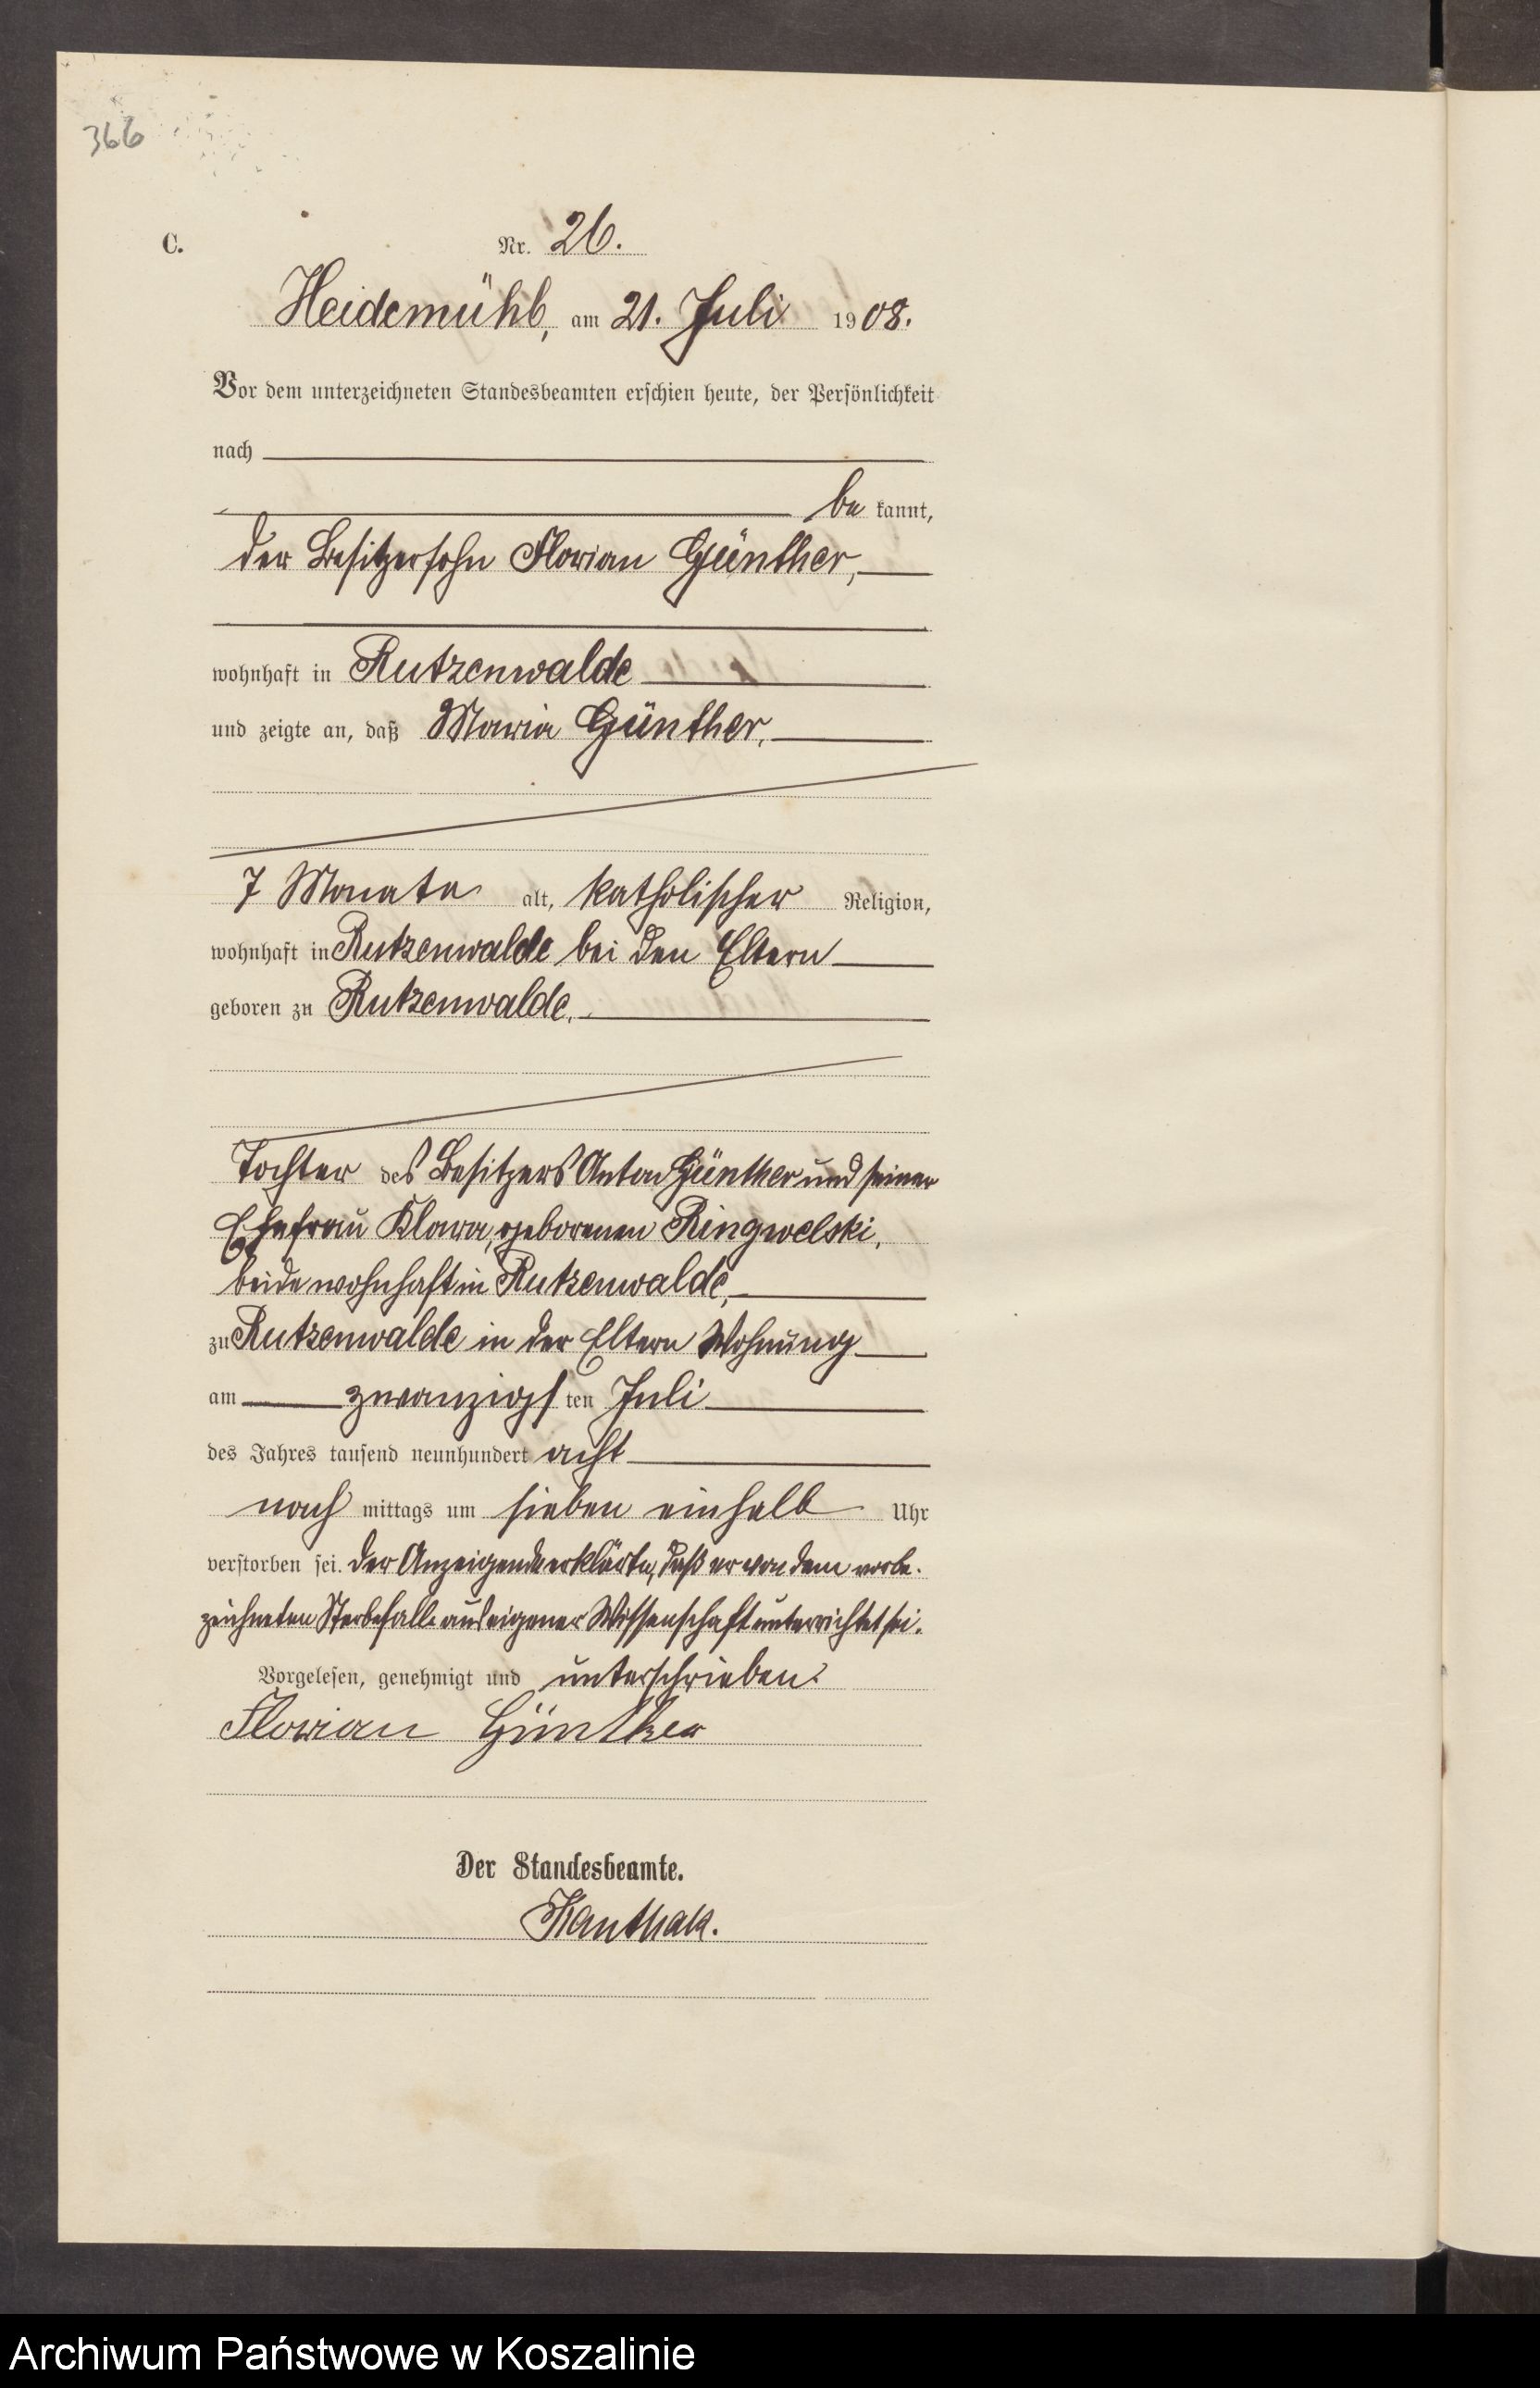 366
C.
Nr. 26.
Heidemühl, am 21. Juli 1908.
Vor dem unterzeichneten Standesbeamten erschien heute, der Persönlichkeit
nach
be kannt,
der Besitzersohn Florian Günther,
wohnhaft in Rutzenwalde
und zeigte an, daß Maria Günther,
7 Monate alt, katholischer Religion,
wohnhaft in Rutzenwalde bei den Eltern
geboren zu Rutzenwalde,
Tochter des Besitzers Anton Günther und seiner
Ehefrau Klara, geborenen Ringwelski,
beide wohnhaft in Rutzenwalde,
zu Rutzenwalde in der Eltern Wohnung
am zwanzigsten Juli
des Jahres tausend neunhundert acht
nach mittags um sieben einhalb Uhr
verstorben sei. Der Anzeigende erklärte, daß er von dem vorbe-
zeichneten Sterbefalle aus eigener Wissenschaft unterrichtet sei.
Vorgelesen, genehmigt und unterschrieben.
Florian Günther
Der Standesbeamte.
Kanthak.
Archiwum Państwowe w Koszalinie